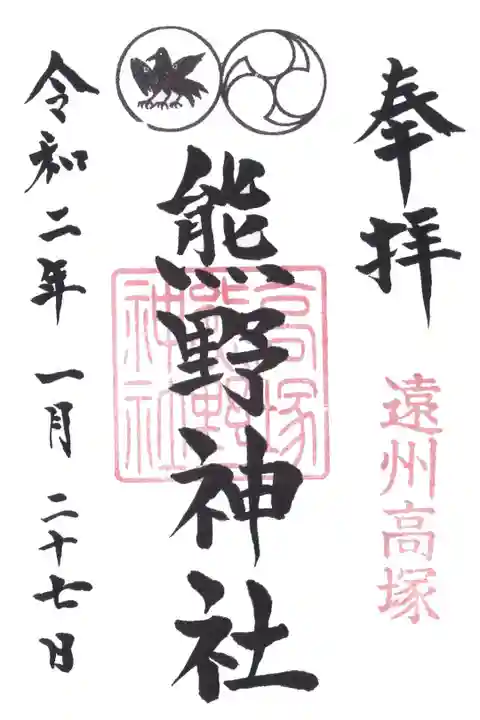 奉拝
遠州高塚
熊野神社
高塚
熊野
神社
令和二年 一月 二十七日